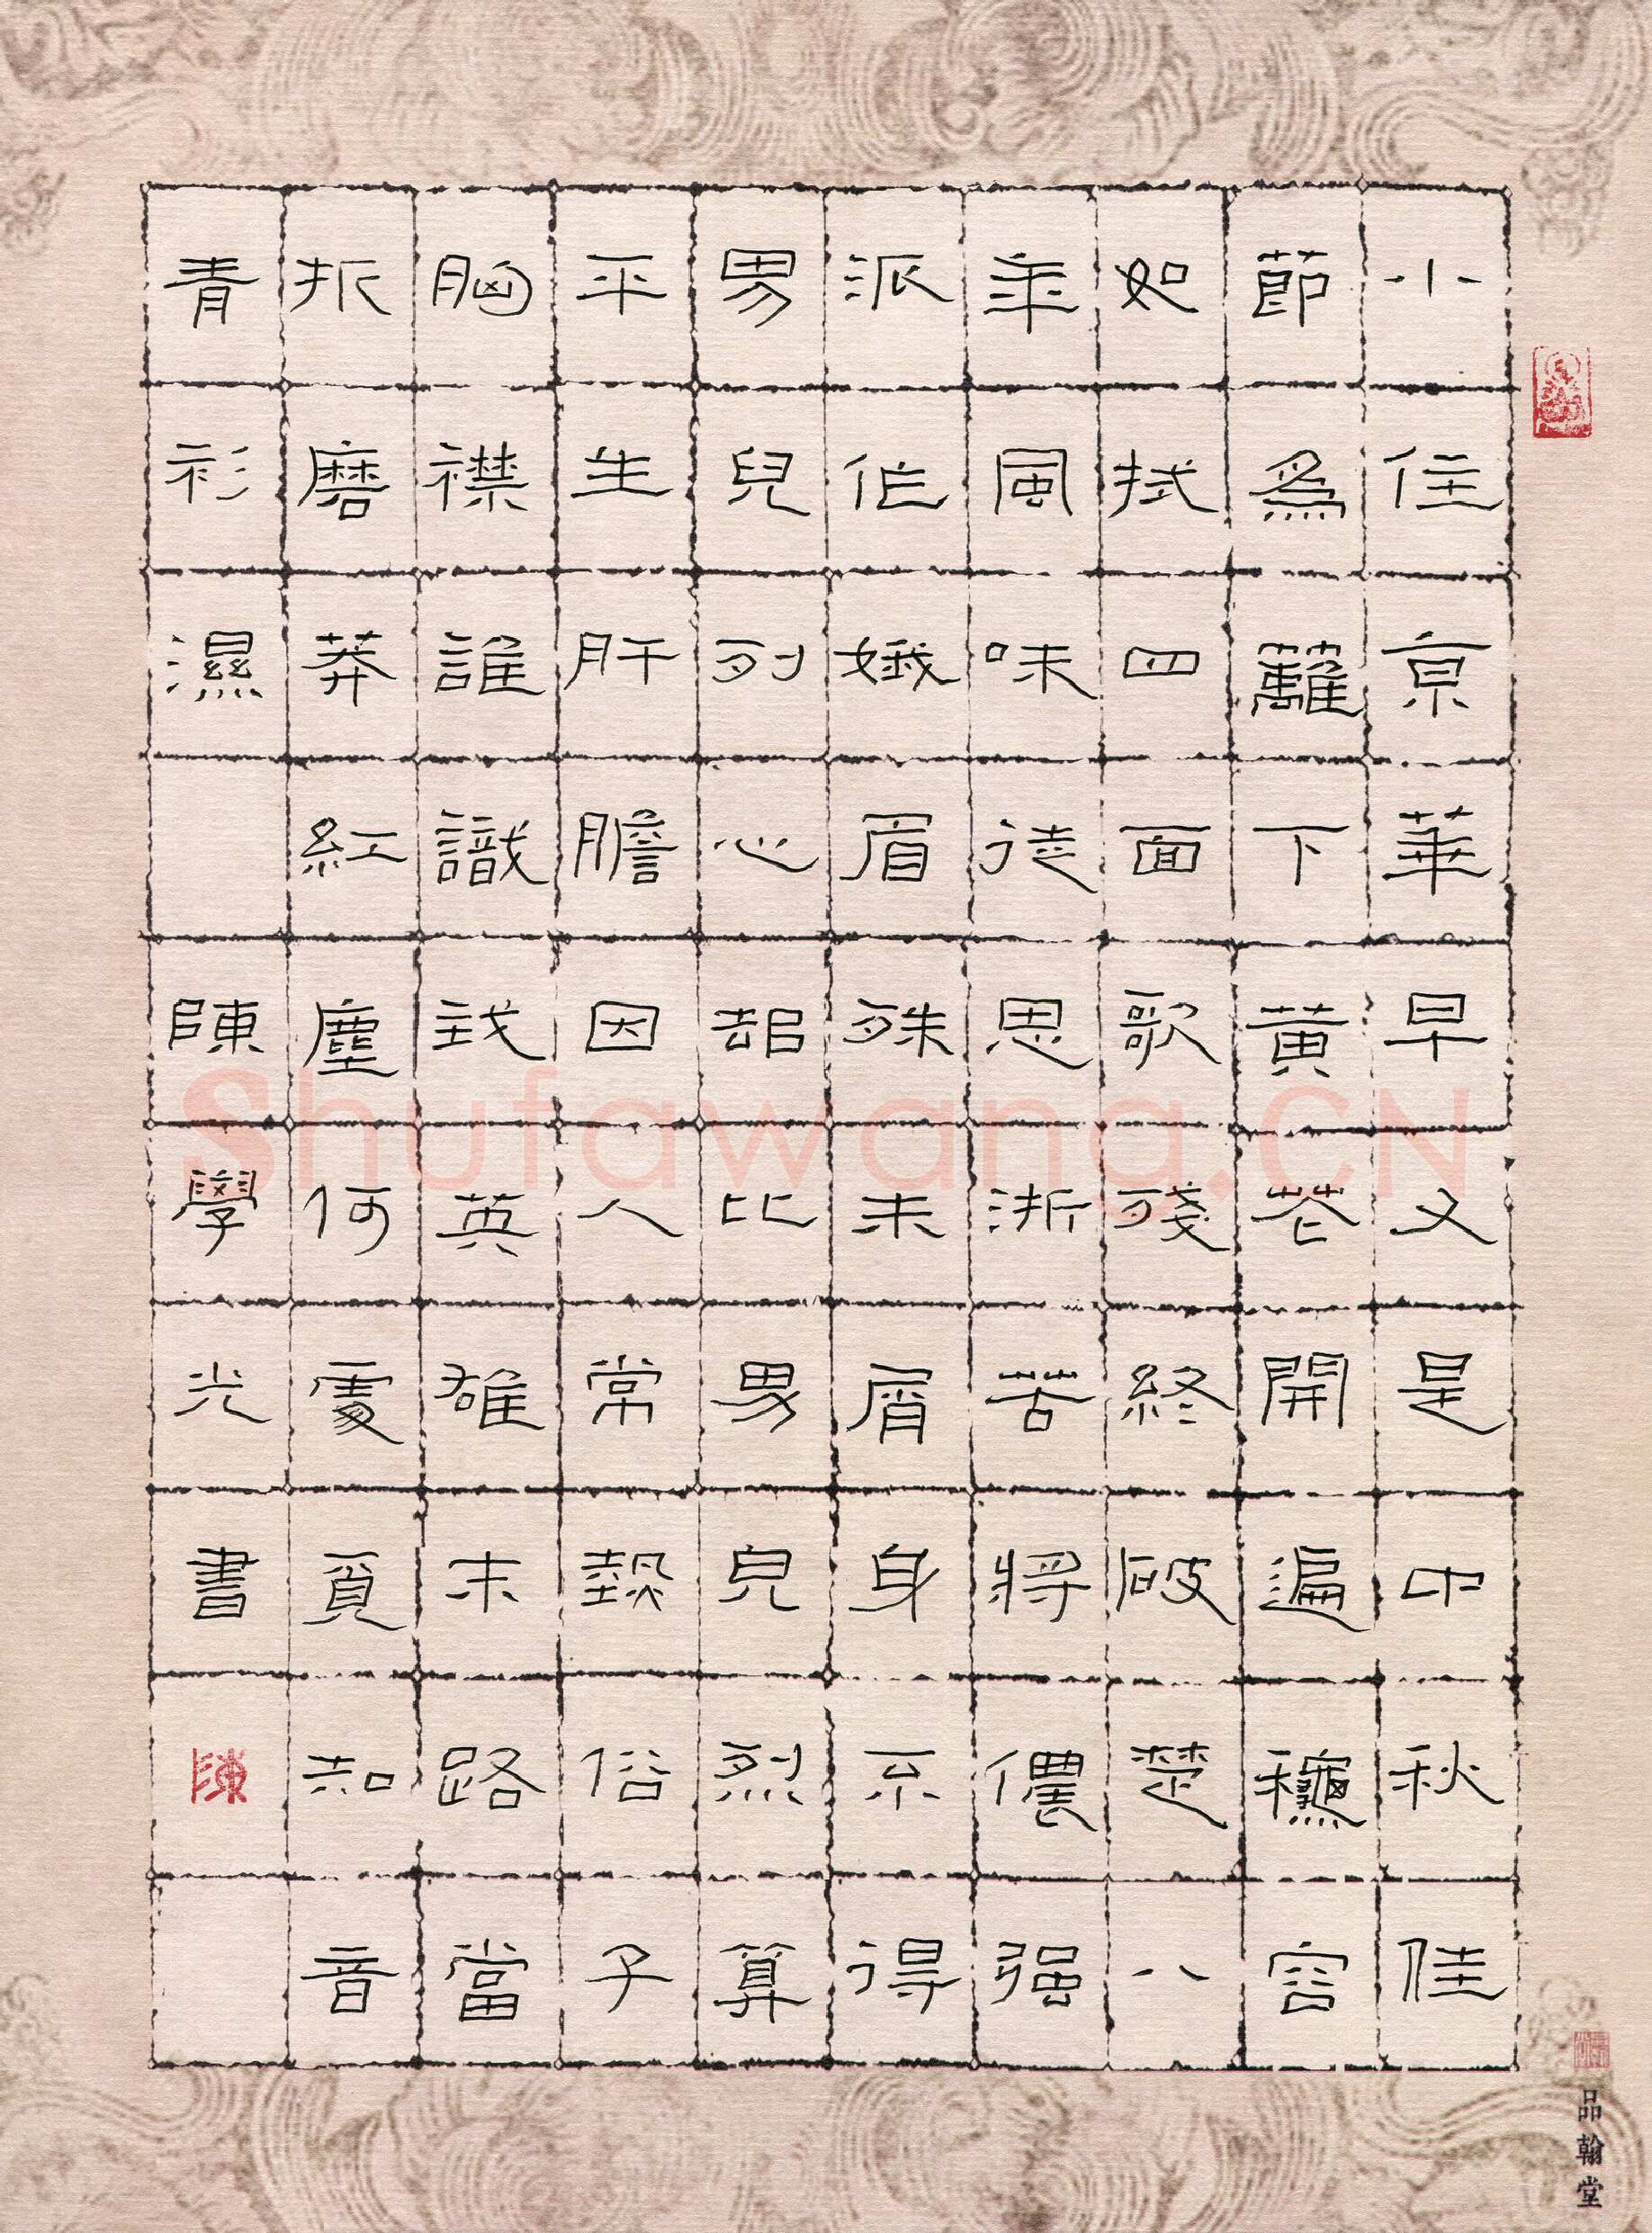 小住京華早又是中秋佳
節爲蘺下黃花開遍穐容
如拭四面歌殘終破楚八
年風味徒思浙苦將儂强
派作娥眉殊未屑身不得
男兒列心卻比男兒烈算
平生肝膽因人常熱俗子
胸襟誰識我英雄末路當
折磨莽紅塵何處覓知音
青衫濕 陳學光書
陳
品翰堂
Shufawang.CN